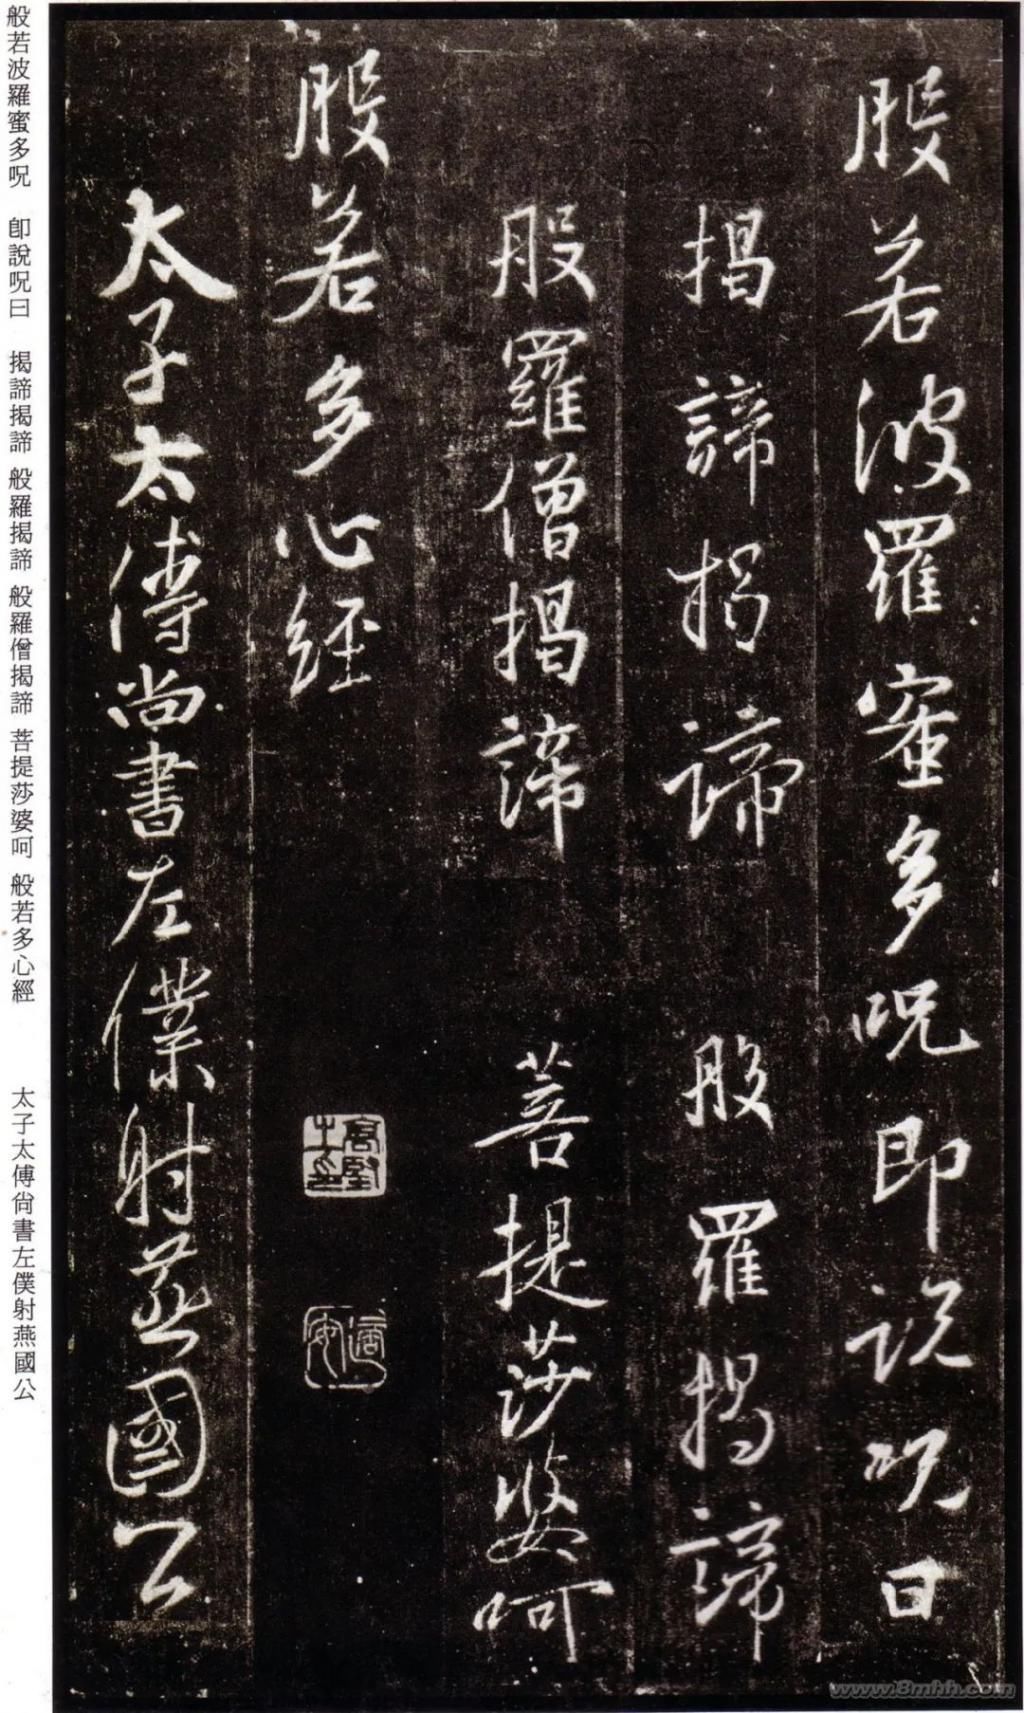 般若波羅蜜多呪即説呪曰
揭諦揭諦 般羅揭諦
般羅僧揭諦 菩提莎婆呵
般若多心經
太子太傅尚書左僕射燕國公
般若波羅蜜多呪 即說呪曰 揭諦揭諦 般羅揭諦 般羅僧揭諦 菩提莎婆呵 般若多心經 太子太傅尚書左僕射燕國公
www.8mhh.com